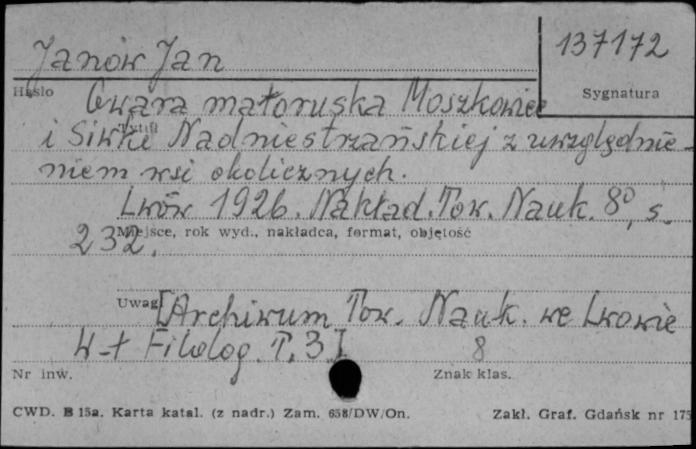 Janów Jan
137172
Hasło
Sygnatura
Gwara małoruska Moszkowiec
Tytuł
i Siwki Naddniestrzańskiej z uwzględnie-
niem wsi okolicznych.
Lwów 1926. Nakład. Tow. Nauk. 8°, s.
Miejsce, rok wyd., nakładca, format, objętość
232.
Uwagi
[Archiwum Tow. Nauk. we Lwowie
W-t Filolog. T. 3]
8
Nr inw.
Znak klas.
CWD. B 15a. Karta katal. (z nadr.) Zam. 658/DW/On.
Zakł. Graf. Gdańsk nr 175